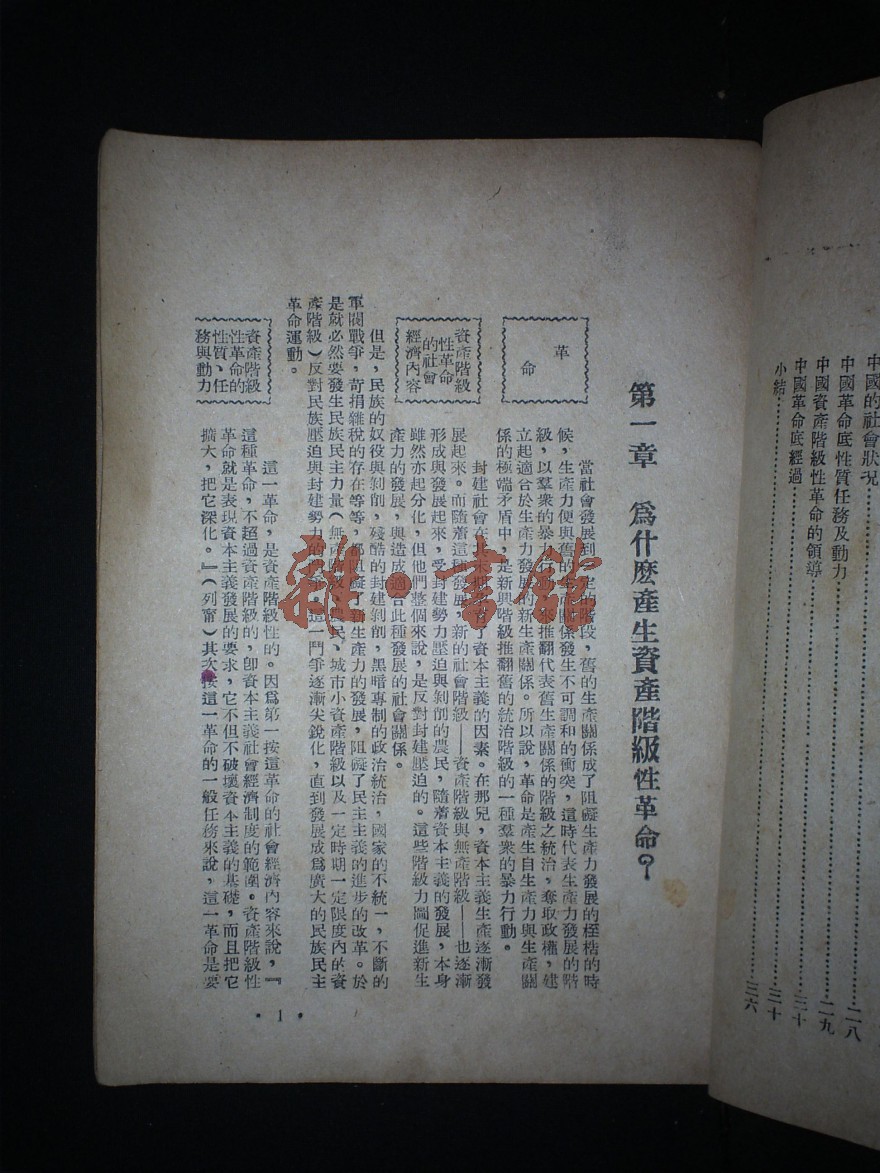 中國的社會狀況
中國革命底性質任務及動力……二八
中國資產階級性革命的領導……二九
中國革命底經過……三十
小結……三十
三六
第一章　爲什麽產生資產階級性革命？
革命
當社會發展到一定的階段，舊的生產關係成了阻礙生產力發展的桎梏的時
候，生產力便與舊的生產關係發生不可調和的衝突，這時代表生產力發展的階
級，以羣衆的暴力行動，來推翻代表舊生產關係的階級之統治，奪取政權，建
立起適合於生產力發展的新生產關係。所以說，革命是產生自生產力與生產關
係的極端矛盾中，是新興階級推翻舊的統治階級的一種羣衆的暴力行動。
資產階級
性革命
的社會
經濟內容
封建社會在其末期孕育了資本主義的因素。在那兒，資本主義生產逐漸發
展起來。而隨着這種發展，新的社會階級——資產階級與無產階級——也逐漸
形成與發展起來，受封建勢力壓迫與剝削的農民，隨着資本主義的發展，本身
雖然亦起分化，但他們整個來說，是反對封建壓迫的。這些階級力圖促進新生
產力的發展，與造成適合此種發展的社會關係。
但是，民族的奴役與剝削，殘酷的封建剝削，黑暗專制的政治統治，國家的不統一，不斷的
軍閥戰爭，苛捐雜稅的存在等等，都阻礙了新生產力的發展，阻礙了民主主義的進步的改革。於
是就必然要發生民族民主力量（無產階級、農民、城市小資產階級以及一定時期一定限度內的資
產階級）反對民族壓迫與封建勢力的鬥爭，這一鬥爭逐漸尖銳化，直到發展成爲廣大的民族民主
革命運動。
資產階級
性革命的
性質、任
務與動力
這一革命，是資產階級性的。因爲第一按這革命的社會經濟內容來說，『
這種革命，不超過資產階級的，卽資本主義社會經濟制度的範圍。資產階級性
革命就是表現資本主義發展的要求，它不但不破壞資本主義的基礎，而且把它
擴大，把它深化。』（列甯）其次按這一革命的一般任務來說，這一革命是要
·1·
雜·書館